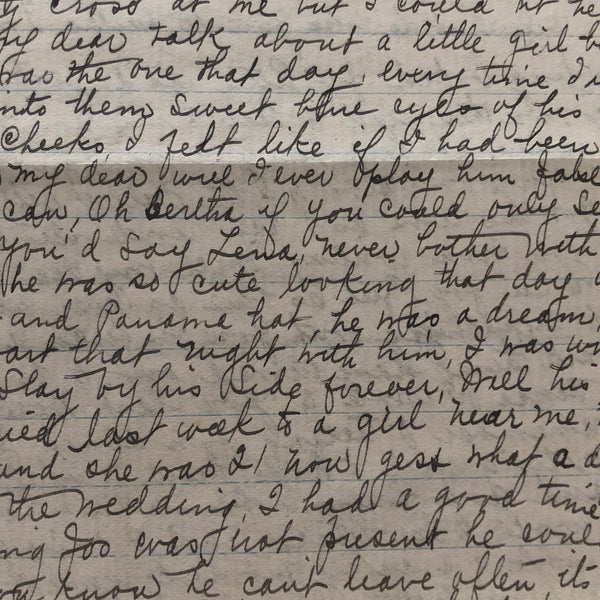 cross at me but I could not he
my dear Talk about a little girl b
was the one that day, every time I
into them sweet blue eyes of his
Cheeks, I felt like if I had been
my dear will I ever play him false
can, Oh Bertha if you could only se
you'd say Lena, never bother with
he was so cute looking that day
and Panama hat, he was a dream,
art that night with him, I was wi
Stay by his side forever, Well his
ied last week to a girl near me,
and she was 21 now gess what a d
the wedding, I had a good time
ng Joo was not present he coul
know he can't leave often, its